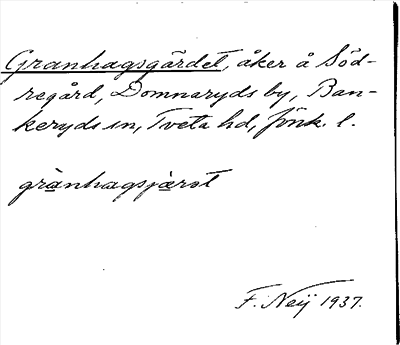 Granhagsgärdet, åker å Söd-
regård, Domnaryds by, Ban-
keryds sn, Tveta hd, Jönk. l.
grànhagsjæ̀rət
F. Neij 1937.